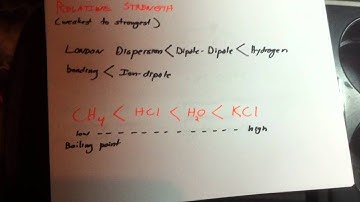 RELATIONAL STRENGTH
(weakest to strongest)
LONDON Dispersion < Dipole-Dipole < Hydrogen
bonding < Ion-dipole
CH4 < HCl < H2O < KCl
low - - - - - - - - - - - - - - high
Boiling point